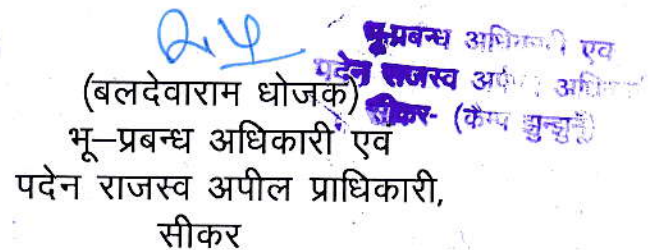 भू-प्रबन्ध अधिकारी एव
पदेन राजस्व अपील
सीकर- (कैम्प झुन्झुनूं)
(बलदेवाराम धोजक)
भू–प्रबन्ध अधिकारी एव
पदेन राजस्व अपील प्राधिकारी,
सीकर